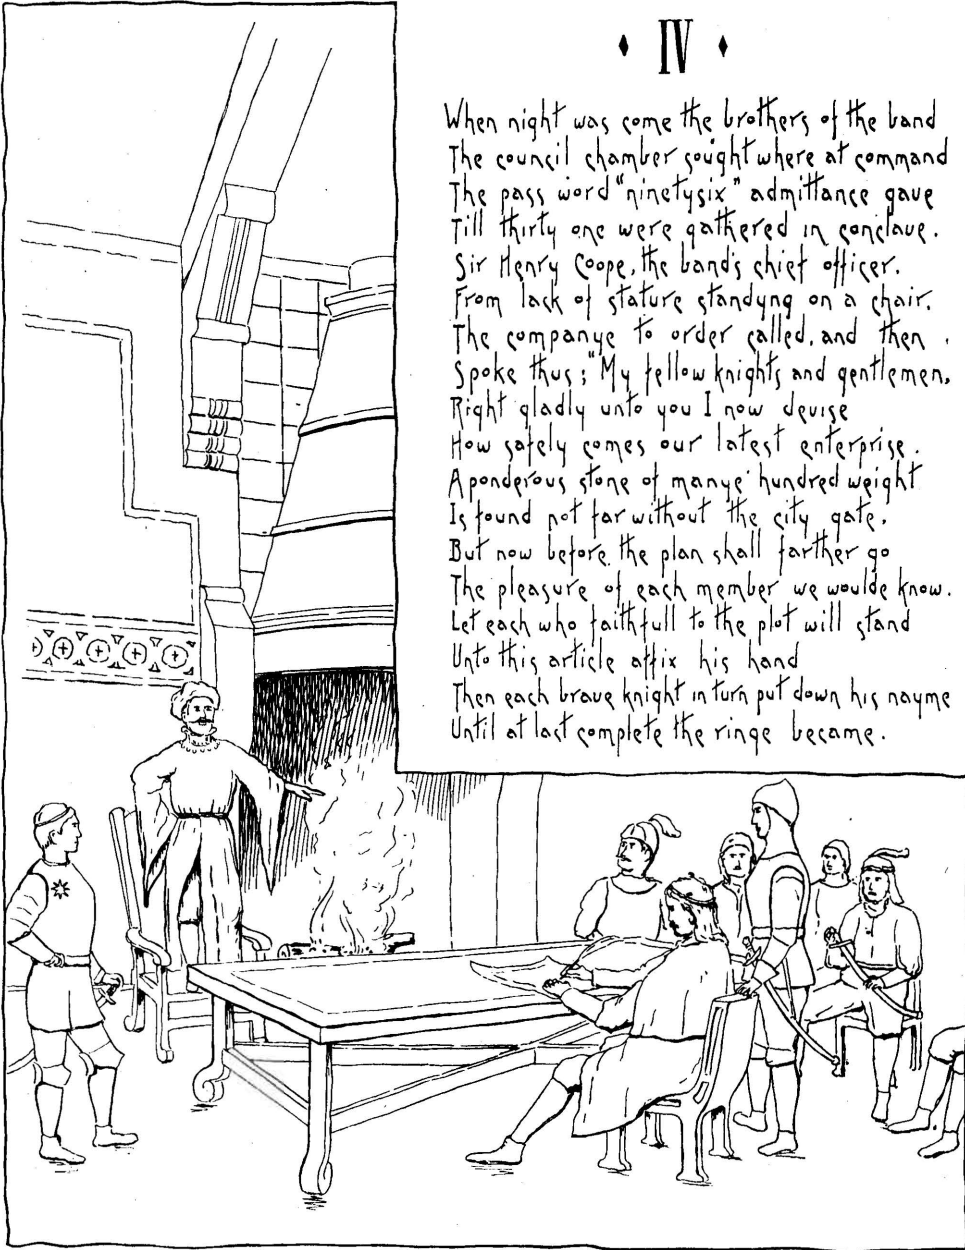 IV
When night was come the brothers of the band
The council chamber sought where at command
The pass word "ninetysix" admittance gave
Till thirty one were gathered in conclave.
Sir Henry Coope, the band's chief officer.
From lack of stature standyng on a chair.
The companye to order called, and then
Spoke thus; "My fellow knights and gentlemen,
Right gladly unto you I now devise
How safely comes our latest enterprise.
A ponderous stone of manye hundred weight
Is found not far without the city gate.
But now before the plan shall farther go
The pleasure of each member we woulde know.
Let each who faithfull to the plot will stand
Unto this article affix his hand
Then each brave knight in turn put down his nayme
Until at last complete the ringe became.